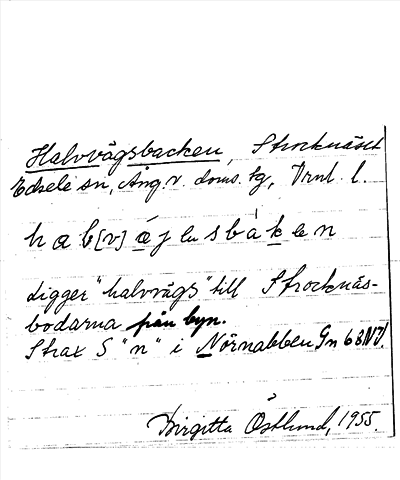 Halvvägsbacken, Stocknäset
Edsele sn, Ång. v. doms. tg, Vrnl. l.
h a b [v] ǽ j l u s b à k e n
digger "halvvägs" till Stocknäs-
bodarna från byn.
Strax S "n" i Nörnabben Gn 63 NJ.
Birgitta Östlund, 1955.